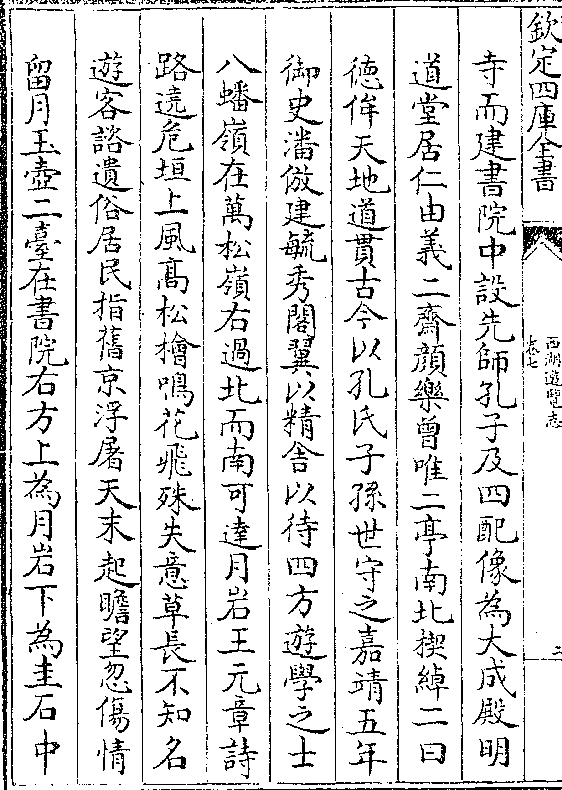 欽定四庫全書
西湖遊覽志
卷七
三
寺而建書院中設先師孔子及四配像為大成殿明
道堂居仁由義二齋顔樂曾唯二亭南北楔綽二曰
徳侔天地道貫古今以孔氏子孫世守之嘉靖五年
御史潘倣建毓秀閣翼以精舎以待四方遊學之士
八蟠嶺在萬松嶺右過北而南可達月岩王元章詩
路遶危垣上風髙松檜鳴花飛殊失意草長不知名
遊客諮遺俗居民指舊京浮屠天末起瞻望忽傷情
留月玉壺二臺在書院右方上為月岩下為圭石中